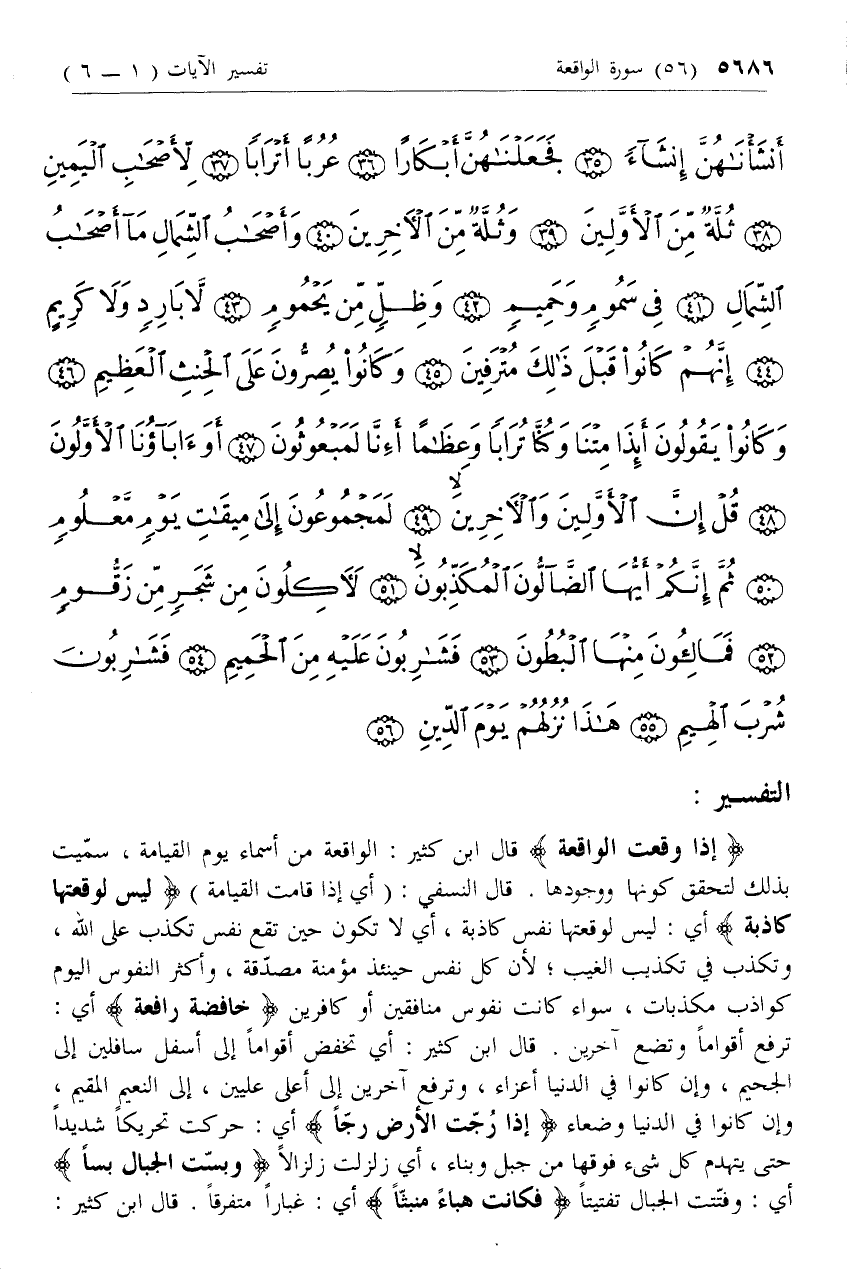 ٥٦٨٦ (٥٦) سورة الواقعة تفسير الآيات ( ١ – ٦ )
أَنشَأْنَٰهُنَّ إِنشَآءً ﴿٣٥﴾ فَجَعَلْنَٰهُنَّ أَبْكَارًا ﴿٣٦﴾ عُرُبًا أَتْرَابًا ﴿٣٧﴾ لِّأَصْحَٰبِ ٱلْيَمِينِ
﴿٣٨﴾ ثُلَّةٌ مِّنَ ٱلْأَوَّلِينَ ﴿٣٩﴾ وَثُلَّةٌ مِّنَ ٱلْآخِرِينَ ﴿٤٠﴾ وَأَصْحَٰبُ ٱلشِّمَالِ مَآ أَصْحَٰبُ
ٱلشِّمَالِ ﴿٤١﴾ فِى سَمُومٍ وَحَمِيمٍ ﴿٤٢﴾ وَظِلٍّ مِّن يَحْمُومٍ ﴿٤٣﴾ لَّا بَارِدٍ وَلَا كَرِيمٍ
﴿٤٤﴾ إِنَّهُمْ كَانُوا۟ قَبْلَ ذَٰلِكَ مُتْرَفِينَ ﴿٤٥﴾ وَكَانُوا۟ يُصِرُّونَ عَلَى ٱلْحِنثِ ٱلْعَظِيمِ ﴿٤٦﴾
وَكَانُوا۟ يَقُولُونَ أَئِذَا مِتْنَا وَكُنَّا تُرَابًا وَعِظَٰمًا أَءِنَّا لَمَبْعُوثُونَ ﴿٤٧﴾ أَوَءَابَآؤُنَا ٱلْأَوَّلُونَ
﴿٤٨﴾ قُلْ إِنَّ ٱلْأَوَّلِينَ وَٱلْآخِرِينَ ۙ ﴿٤٩﴾ لَمَجْمُوعُونَ إِلَىٰ مِيقَٰتِ يَوْمٍ مَّعْلُومٍ
﴿٥٠﴾ ثُمَّ إِنَّكُمْ أَيُّهَا ٱلضَّآلُّونَ ٱلْمُكَذِّبُونَ ۙ ﴿٥١﴾ لَآكِلُونَ مِن شَجَرٍ مِّن زَقُّومٍ
﴿٥٢﴾ فَمَالِـُٔونَ مِنْهَا ٱلْبُطُونَ ﴿٥٣﴾ فَشَٰرِبُونَ عَلَيْهِ مِنَ ٱلْحَمِيمِ ﴿٥٤﴾ فَشَٰرِبُونَ
شُرْبَ ٱلْهِيمِ ﴿٥٥﴾ هَٰذَا نُزُلُهُمْ يَوْمَ ٱلدِّينِ ﴿٥٦﴾
التفسير :
﴿ إذا وقعت الواقعة ﴾ قال ابن كثير : الواقعة من أسماء يوم القيامة ، سمّيت
بذلك لتحقق كونها ووجودها . قال النسفي : ( أي إذا قامت القيامة ) ﴿ ليس لوقعتها
كاذبة ﴾ أي : ليس لوقعتها نفس كاذبة ، أي لا تكون حين تقع نفس تكذب على الله ،
وتكذب في تكذيب الغيب ؛ لأن كل نفس حينئذ مؤمنة مصدّقة ، وأكثر النفوس اليوم
كواذب مكذبات ، سواء كانت نفوس منافقين أو كافرين ﴿ خافضة رافعة ﴾ أي :
ترفع أقواماً وتضع آخرين . قال ابن كثير : أي تخفض أقواماً إلى أسفل سافلين إلى
الجحيم ، وإن كانوا في الدنيا أعزاء ، وترفع آخرين إلى أعلى عليين ، إلى النعيم المقيم ،
وإن كانوا في الدنيا وضعاء ﴿ إذا رُجّت الأرض رجّاً ﴾ أي : حركت تحريكاً شديداً
حتى يتهدم كل شىء فوقها من جبل وبناء ، أي زلزلت زلزالاً ﴿ وبسّت الجبال بساً ﴾
أي : وفتّتت الجبال تفتيتاً ﴿ فكانت هباءً منبثّاً ﴾ أي : غباراً متفرقاً . قال ابن كثير :